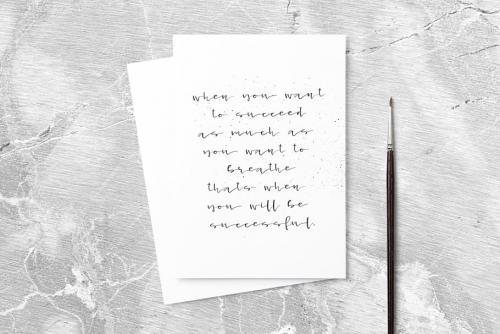 when you want
to succeed
as much as
you want to
breathe
thats when
you will be
successful.